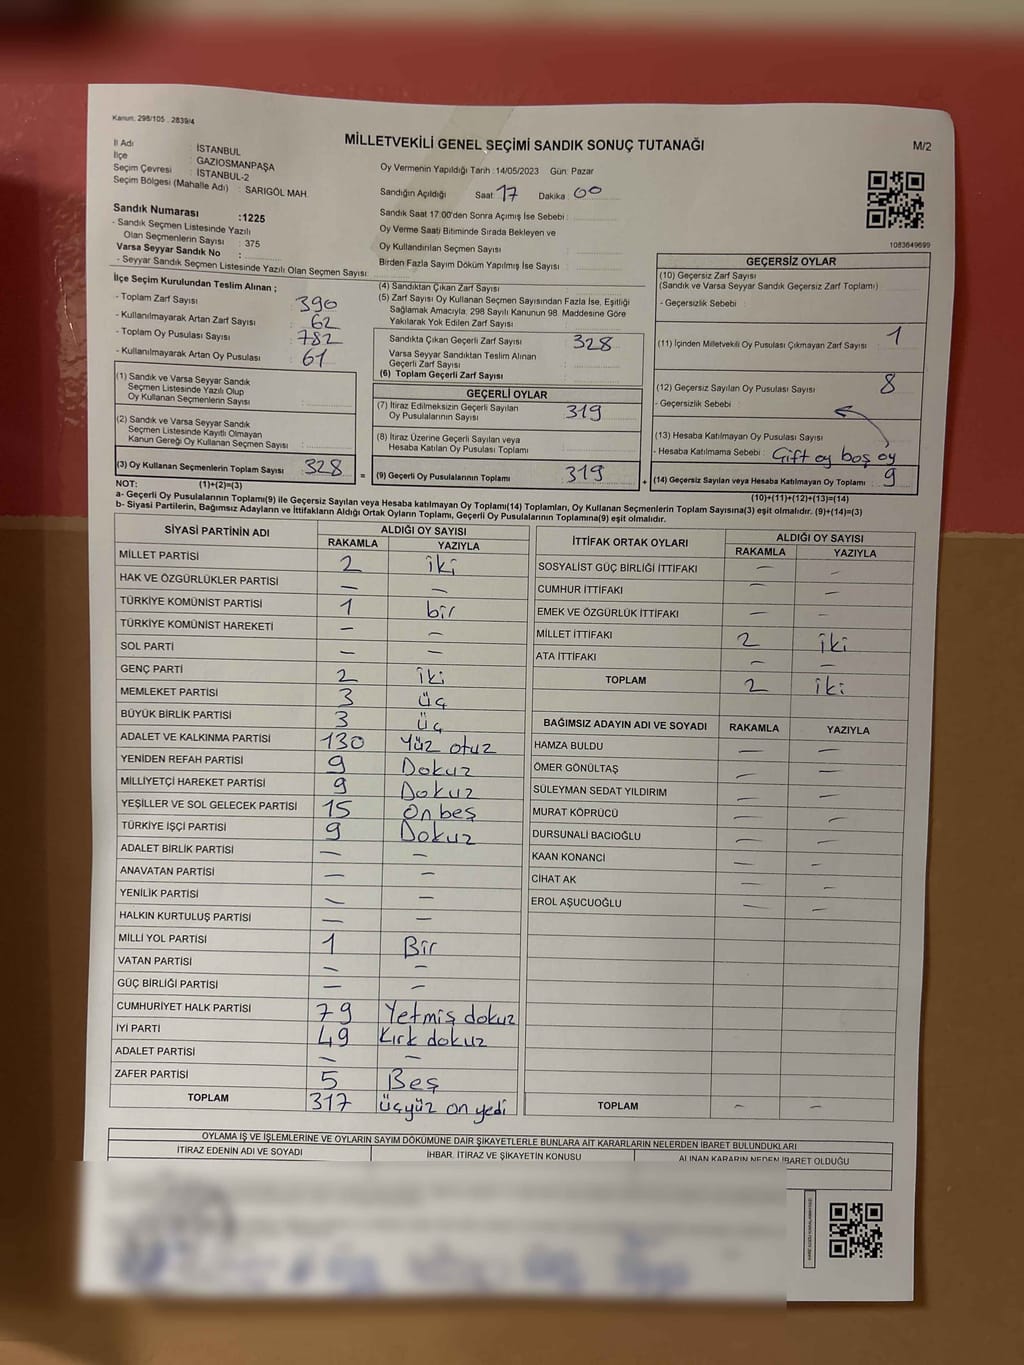 Kanun. 298/105 . 2839/4
MİLLETVEKİLİ GENEL SEÇİMİ SANDIK SONUÇ TUTANAĞI
M/2
İl Adı : İSTANBUL
İlçe : GAZİOSMANPAŞA
Seçim Çevresi : İSTANBUL-2
Seçim Bölgesi (Mahalle Adı) : SARIGÖL MAH.
Oy Vermenin Yapıldığı Tarih :14/05/2023 Gün: Pazar
Sandığın Açıldığı Saat: 17 Dakika: 00
Sandık Numarası :1225
- Sandık Seçmen Listesinde Yazılı
Olan Seçmenlerin Sayısı : 375
Varsa Seyyar Sandık No :
- Seyyar Sandık Seçmen Listesinde Yazılı Olan Seçmen Sayısı:
Sandık Saat 17.00'den Sonra Açımış İse Sebebi :
Oy Verme Saati Bitiminde Sırada Bekleyen ve
Oy Kullandırılan Seçmen Sayısı
Birden Fazla Sayım Döküm Yapılmış İse Sayısı :
1083649699
İlçe Seçim Kurulundan Teslim Alınan ;
- Toplam Zarf Sayısı : 390
- Kullanılmayarak Artan Zarf Sayısı : 62
- Toplam Oy Pusulası Sayısı : 782
- Kullanılmayarak Artan Oy Pusulası : 61
(1) Sandık ve Varsa Seyyar Sandık
Seçmen Listesinde Yazılı Olup
Oy Kullanan Seçmenlerin Sayısı :
(2) Sandık ve Varsa Seyyar Sandık
Seçmen Listesinde Kayıtlı Olmayan
Kanun Gereği Oy Kullanan Seçmen Sayısı :
(3) Oy Kullanan Seçmenlerin Toplam Sayısı : 328 =
(4) Sandıktan Çıkan Zarf Sayısı :
(5) Zarf Sayısı Oy Kullanan Seçmen Sayısından Fazla İse, Eşitliği
Sağlamak Amacıyla, 298 Sayılı Kanunun 98. Maddesine Göre
Yakılarak Yok Edilen Zarf Sayısı :
Sandıkta Çıkan Geçerli Zarf Sayısı : 328
Varsa Seyyar Sandıktan Teslim Alınan
Geçerli Zarf Sayısı :
(6) Toplam Geçerli Zarf Sayısı :
GEÇERLİ OYLAR
(7) İtiraz Edilmeksizin Geçerli Sayılan
Oy Pusulalarının Sayısı : 319
(8) İtiraz Üzerine Geçerli Sayılan veya
Hesaba Katılan Oy Pusulası Toplamı :
(9) Geçerli Oy Pusulalarının Toplamı : 319 +
GEÇERSİZ OYLAR
(10) Geçersiz Zarf Sayısı
(Sandık ve Varsa Seyyar Sandık Geçersiz Zarf Toplamı) :
- Geçersizlik Sebebi :
(11) İçinden Milletvekili Oy Pusulası Çıkmayan Zarf Sayısı : 1
(12) Geçersiz Sayılan Oy Pusulası Sayısı : 8
- Geçersizlik Sebebi :
(13) Hesaba Katılmayan Oy Pusulası Sayısı :
- Hesaba Katılmama Sebebi : Çift oy boş oy
(14) Geçersiz Sayılan veya Hesaba Katılmayan Oy Toplamı : 9
NOT: (1)+(2)=(3)
(10)+(11)+(12)+(13)=(14)
a- Geçerli Oy Pusulalarının Toplamı(9) ile Geçersiz Sayılan veya Hesaba katılmayan Oy Toplamı(14) Toplamları, Oy Kullanan Seçmenlerin Toplam Sayısına(3) eşit olmalıdır. (9)+(14)=(3)
b- Siyasi Partilerin, Bağımsız Adayların ve İttifakların Aldığı Ortak Oyların Toplamı, Geçerli Oy Pusulalarının Toplamına(9) eşit olmalıdır.
SİYASİ PARTİNİN ADI ALDIĞI OY SAYISI
RAKAMLA YAZIYLA
MİLLET PARTİSİ 2 iki
HAK VE ÖZGÜRLÜKLER PARTİSİ – –
TÜRKİYE KOMÜNİST PARTİSİ 1 bir
TÜRKİYE KOMÜNİST HAREKETİ – –
SOL PARTİ – –
GENÇ PARTİ 2 iki
MEMLEKET PARTİSİ 3 üç
BÜYÜK BİRLİK PARTİSİ 3 üç
ADALET VE KALKINMA PARTİSİ 130 Yüz otuz
YENİDEN REFAH PARTİSİ 9 Dokuz
MİLLİYETÇİ HAREKET PARTİSİ 9 Dokuz
YEŞİLLER VE SOL GELECEK PARTİSİ 15 On beş
TÜRKİYE İŞÇİ PARTİSİ 9 Dokuz
ADALET BİRLİK PARTİSİ – –
ANAVATAN PARTİSİ – –
YENİLİK PARTİSİ – –
HALKIN KURTULUŞ PARTİSİ – –
MİLLİ YOL PARTİSİ 1 Bir
VATAN PARTİSİ – –
GÜÇ BİRLİĞİ PARTİSİ – –
CUMHURİYET HALK PARTİSİ 79 Yetmiş dokuz
İYİ PARTİ 49 Kırk dokuz
ADALET PARTİSİ – –
ZAFER PARTİSİ 5 Beş
TOPLAM 317 üçyüz on yedi
İTTİFAK ORTAK OYLARI ALDIĞI OY SAYISI
RAKAMLA YAZIYLA
SOSYALİST GÜÇ BİRLİĞİ İTTİFAKI – –
CUMHUR İTTİFAKI – –
EMEK VE ÖZGÜRLÜK İTTİFAKI – –
MİLLET İTTİFAKI 2 iki
ATA İTTİFAKI – –
TOPLAM 2 iki
BAĞIMSIZ ADAYIN ADI VE SOYADI RAKAMLA YAZIYLA
HAMZA BULDU – –
ÖMER GÖNÜLTAŞ – –
SÜLEYMAN SEDAT YILDIRIM – –
MURAT KÖPRÜCÜ – –
DURSUNALİ BACIOĞLU – –
KAAN KONANCİ – –
CİHAT AK – –
EROL AŞUCUOĞLU – –
TOPLAM – –
OYLAMA İŞ VE İŞLEMLERİNE VE OYLARIN SAYIM DÖKÜMÜNE DAİR ŞİKAYETLERLE BUNLARA AİT KARARLARIN NELERDEN İBARET BULUNDUKLARI
İTİRAZ EDENİN ADI VE SOYADI İHBAR, İTİRAZ VE ŞİKAYETİN KONUSU ALINAN KARARIN NEDEN İBARET OLDUĞU